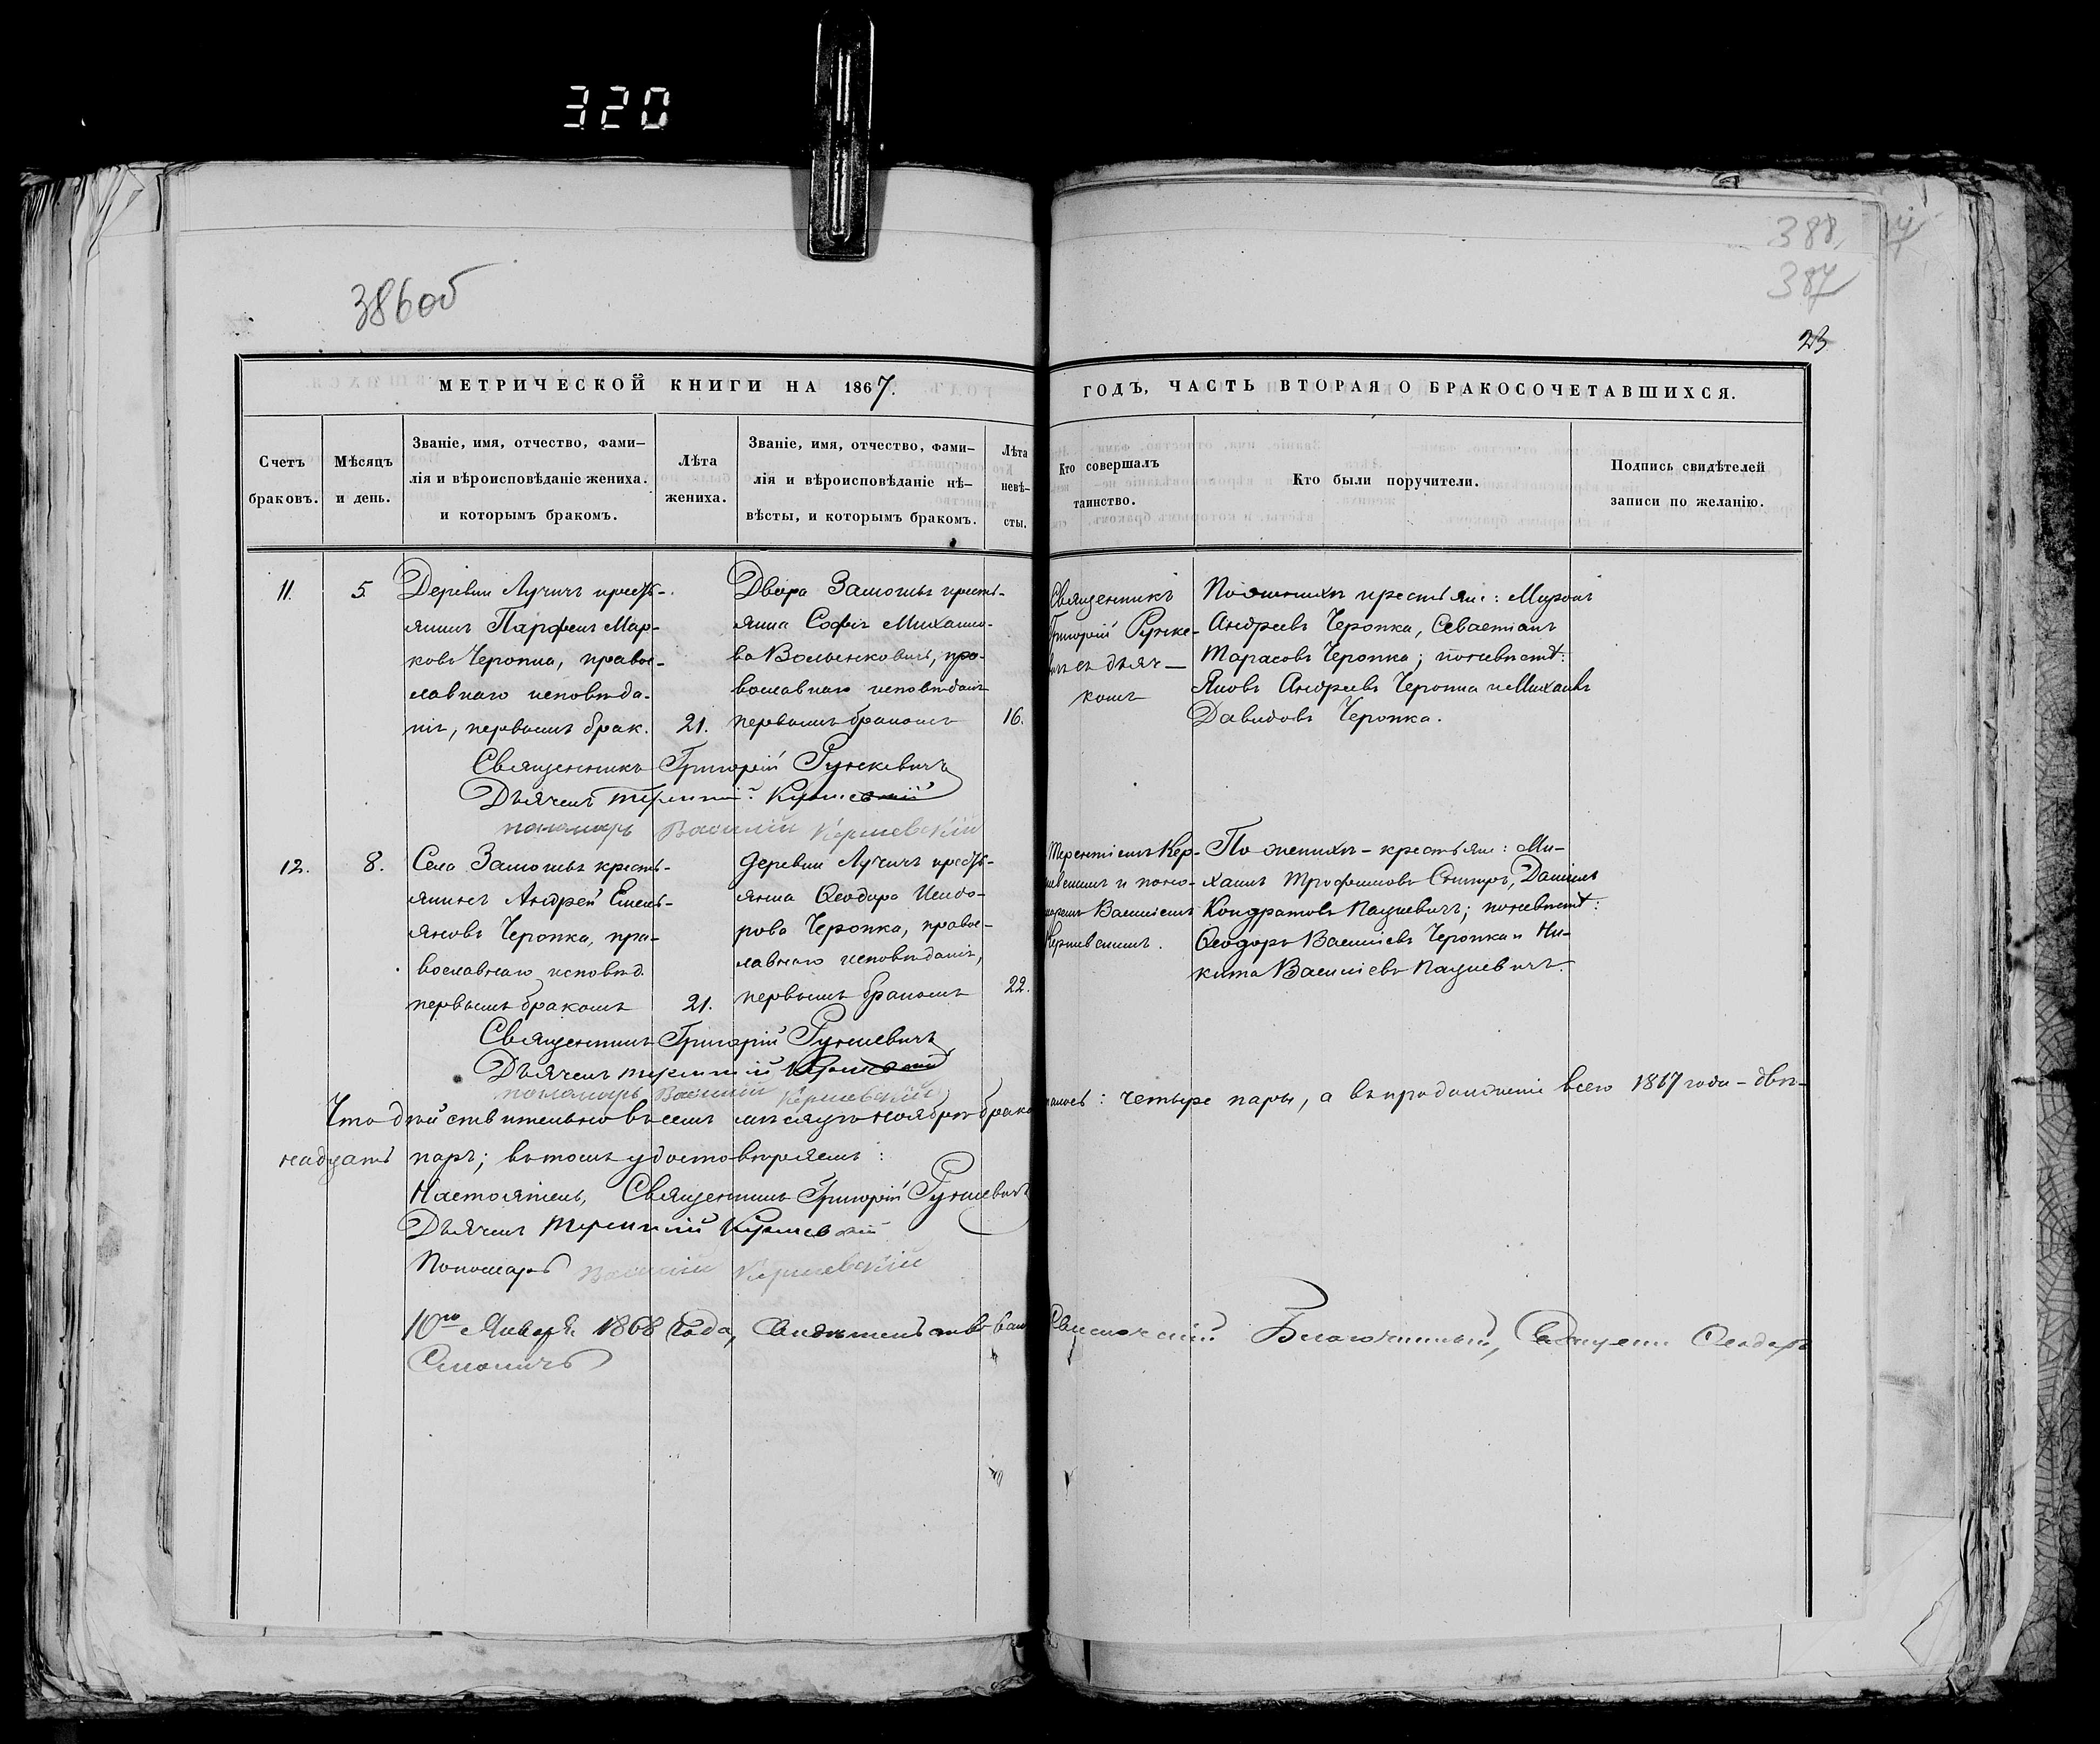 320
386 об
388
387
23
МЕТРИЧЕСКОЙ КНИГИ НА 1867.
ГОДЪ, ЧАСТЬ ВТОРАЯ О БРАКОСОЧЕТАВШИХСЯ.
Счетъ
браковъ.
Мѣсяцъ
и день.
Званіе, имя, отчество, фами–
лія и вѣроисповѣданіе жениха.
и которымъ бракомъ.
Лѣта
жениха.
Званіе, имя, отчество, фами–
лія и вѣроисповѣданіе нѣ–
вѣсты, и которымъ бракомъ.
Лѣта
невѣ–
сты.
Кто совершалъ
таинство.
Кто были поручители.
Подпись свидѣтелей
записи по желанію.
11.
5
Деревни Лучичъ кресть-
янинъ Парфенъ Мар-
ковъ Черопка, правос-
лавнаго исповѣда-
нія, первымъ брак.
21.
Двора Замошья кресть-
янка Софія Михайло-
ва Вольнковичъ, пра-
вославнаго исповѣданія
первымъ бракомъ
16.
Священникъ
Григорій Рунке-
вичъ съ дьяч-
комъ
По женихѣ крестьяне: Миронъ
Андреевъ Черопка, Севастіанъ
Тарасовъ Черопка; по невѣстѣ:
Яковъ Андреевъ Черопка и Михаилъ
Давидовъ Черопка.
Священникъ Григорій Рункевичъ
Дьячекъ Терентій
пономарь Василій Кершевскій
12.
8.
Села Замошья кресть-
янинъ Андрей Емель-
яновъ Черопка, пра-
вославнаго исповѣд.
первымъ бракомъ
21.
Деревни Лучичъ кресть-
янка Ѳеодора Исидо-
рова Черопка, правос-
лавнаго исповѣданія,
первымъ бракомъ
22.
Терентіемъ Кер-
шевскимъ и поно-
маремъ Василіемъ
Кершевскимъ.
По женихѣ - крестьяне: Ми-
хаилъ Трофимовъ Даніилъ
Кондратовъ Пацкевичъ; по невѣстѣ:
Ѳеодоръ Василіевъ Черопка и Ни-
кита Василіевъ Пацкевичъ.
Священникъ Григорій Рункевичъ
Дьячекъ Терентій
пономарь Василій Кершевскій
Что дѣйствительно въ семъ мѣсяцѣ ноябрѣ брако
чалось: четыре пары, а въ продолженіе всего 1867 года - двѣ-
надцать паръ; въ томъ удостовѣряемъ:
Настоятель, Священникъ Григорій Рункевичъ
Дьячекъ Терентій Кершевскій
Пономарь Василій Кершевскій
10го Января 1868 года, Свидѣтельствовалъ
Благочинный, Священникъ Ѳеодоръ